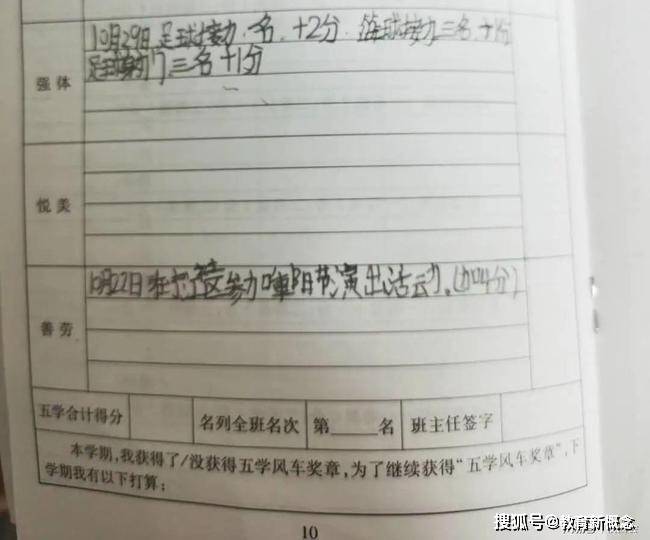 10月29日.足球接力.一名.+2分.篮球接力三名.+1分
足球射门三名+1分
强体
悦美
10月22日在社区参加重阳节演出活动.(加4分)
善劳
五学合计得分 名列全班名次 第____名 班主任签字
本学期,我获得了/没获得五学风车奖章,为了继续获得“五学风车奖章”,下
学期我有以下打算:
10
搜狐号@教育新概念